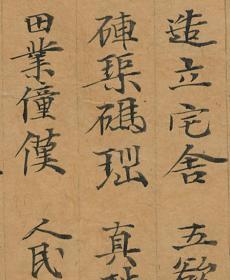 造立宅舍 五欲
硨渠碼瑙 真
田業僮僕 人民